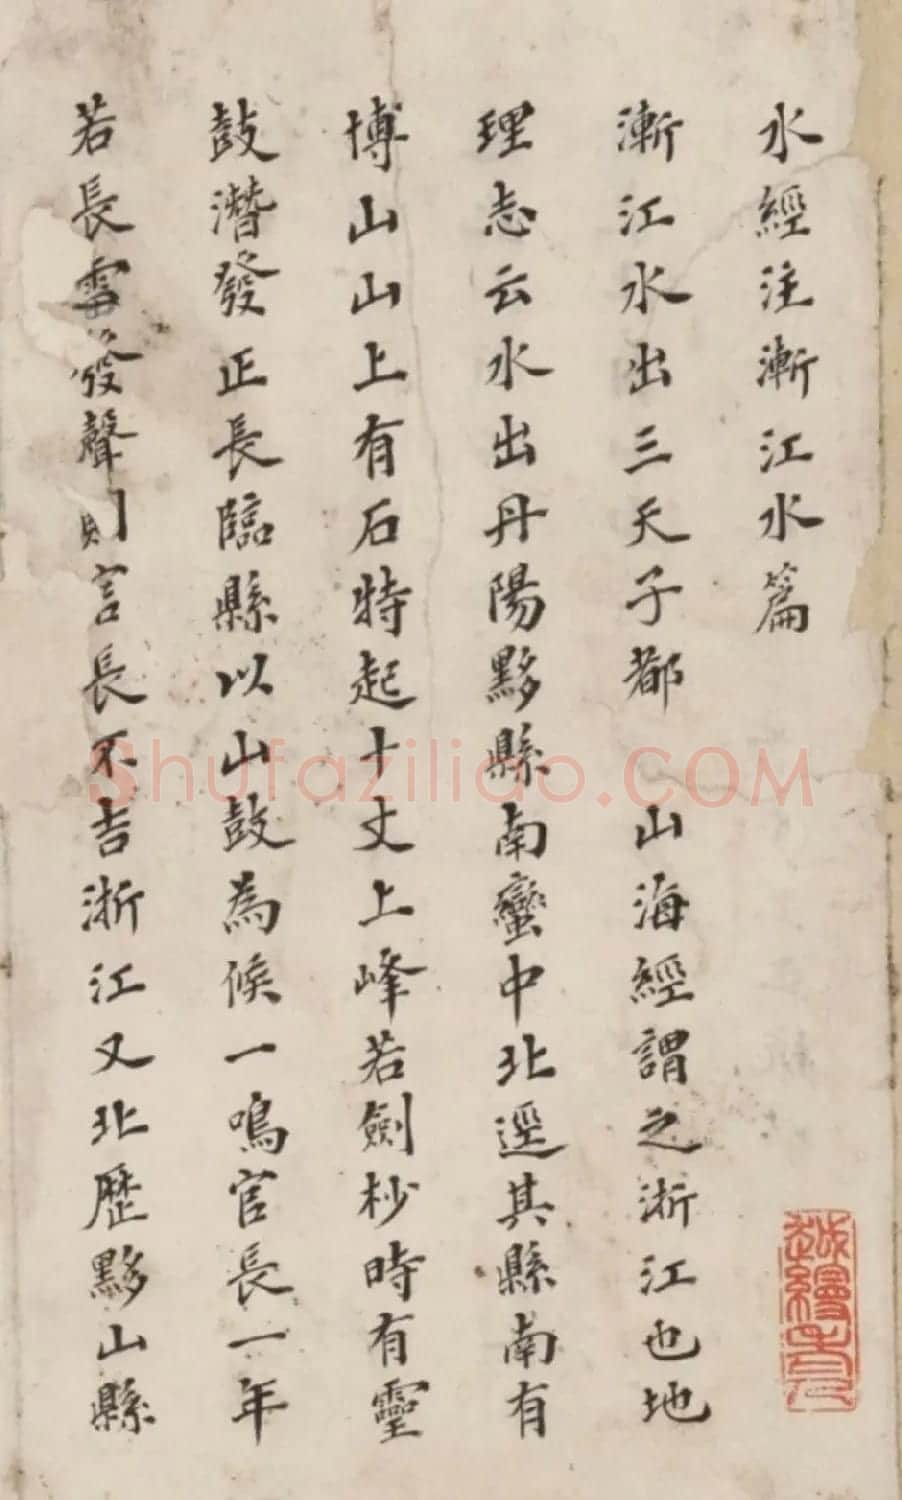 水經注漸江水篇
漸江水出三天子都 山海經謂之浙江也地
理志云水出丹陽黟縣南蠻中北逕其縣南有
博山山上有石特起十丈上峰若劍杪時有靈
鼓潛發正長臨縣以山鼓為候一鳴官長一年
若長雷發聲則言長不吉浙江又北歷黟山縣
Shufaziliao.COM